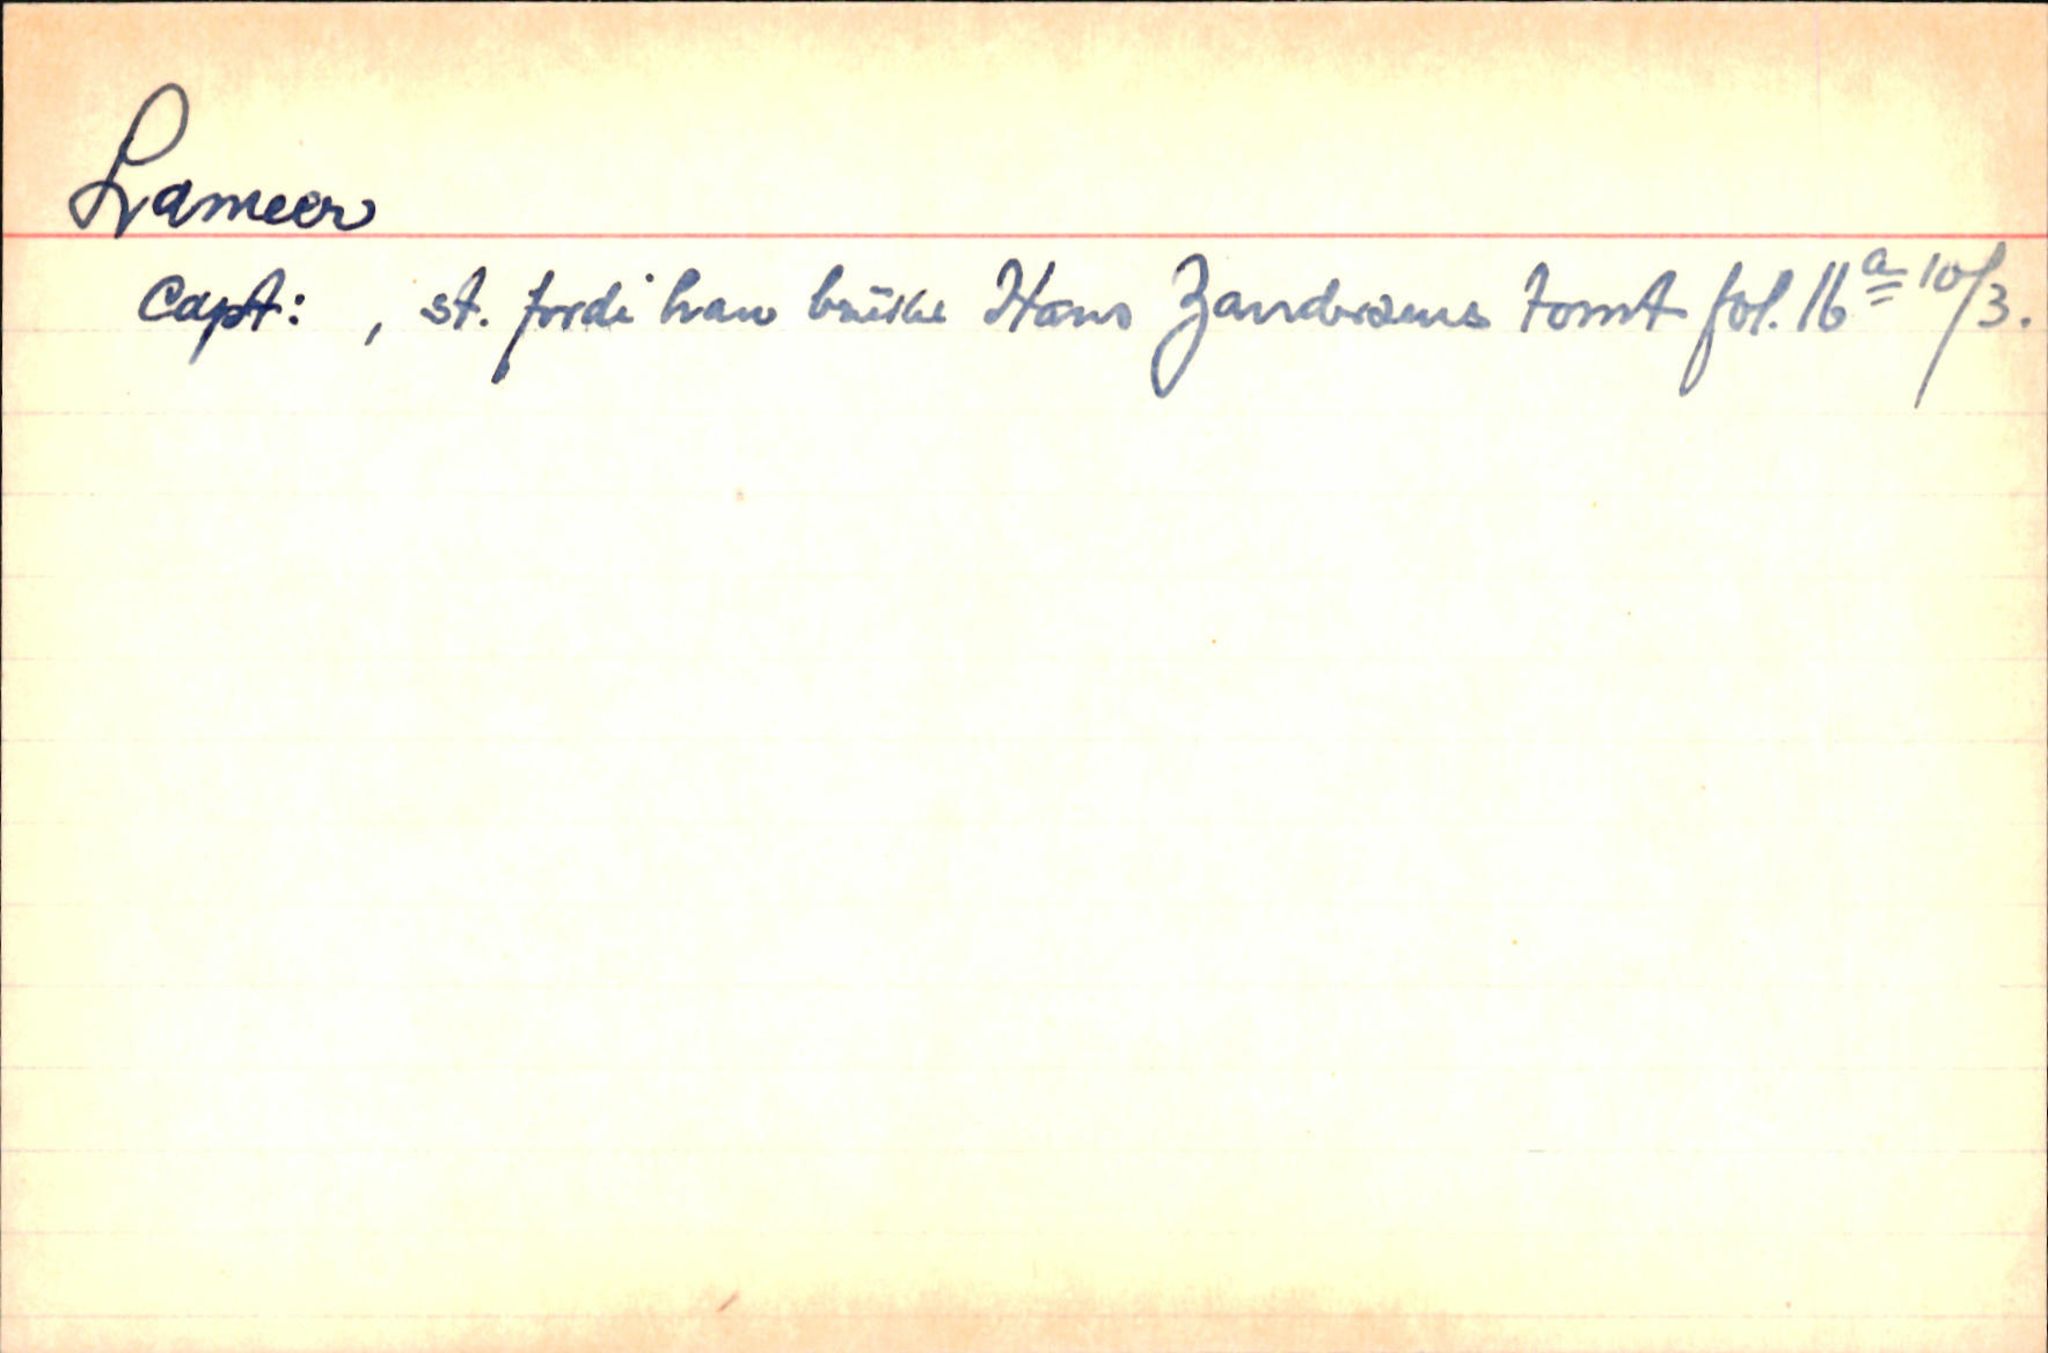 Lameer
Capt: , st. fordi han brüke Hans Zandersens tomt fol. 16a 10/3.